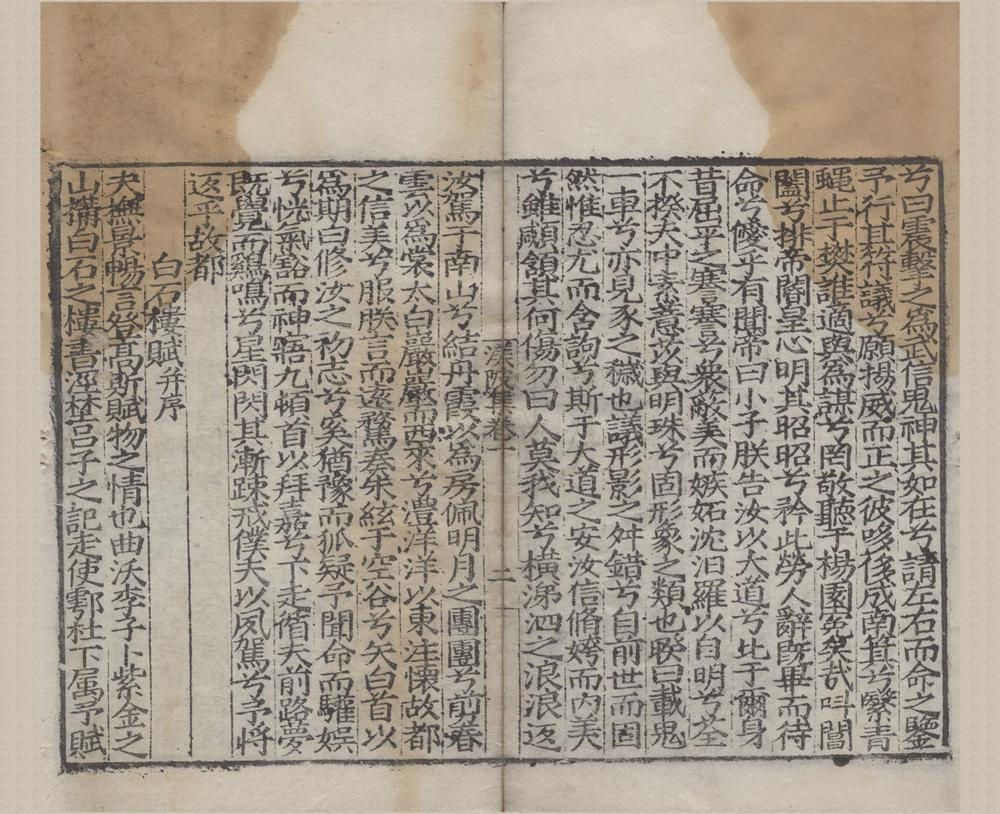 兮曰震擊之為武信鬼神其如在兮請左右而命之鑒
予行其符議兮願揚威而正之彼哆侈成南箕兮繄青
蠅止于樊誰適與為謀兮罔敬聽乎楊園冤矣哉叫閶
闔兮排帝閽呈忠明其昭昭兮矜此勞人辭既畢而待
命兮儵乎有聞帝曰小子朕告汝以大道兮比于爾身
昔屈平之蹇蹇兮衆蔽美而嫉妬沈汨羅以自明兮荃
不揆夫中素薏苡與明珠兮固形象之類也睽曰載鬼
一車兮亦見豕之穢也議形影之舛錯兮自前世而固
然惟忍尤而含詢兮斯于大道之安汝信脩姱而内美
兮雖顑頷其何傷勿曰人莫我知兮橫涕泗之浪浪返
漢陂集卷一
二
汝駕于南山兮結丹霞以為房佩明月之團團兮前春
雲以為裳太白嚴嚴而西來兮灃洋洋以東注懷故都
之信美兮服朕言而遠騖奏朱絃于空谷兮矢白首以
為期白修汝之初志兮奚猶豫而狐疑予聞命而驩娛
兮恍氣豁而神寤九頓首以拜嘉兮下走循夫前路夢
既覺而鷄鳴兮星閃閃其漸疎戒僕夫以夙駕兮予將
返乎故都
白石樓賦并序
夫撫景暢言登高斯賦物之情也曲沃李子卜紫金之
山搆白石之樓書涇埜呂子之記走使鄠杜下属予賦